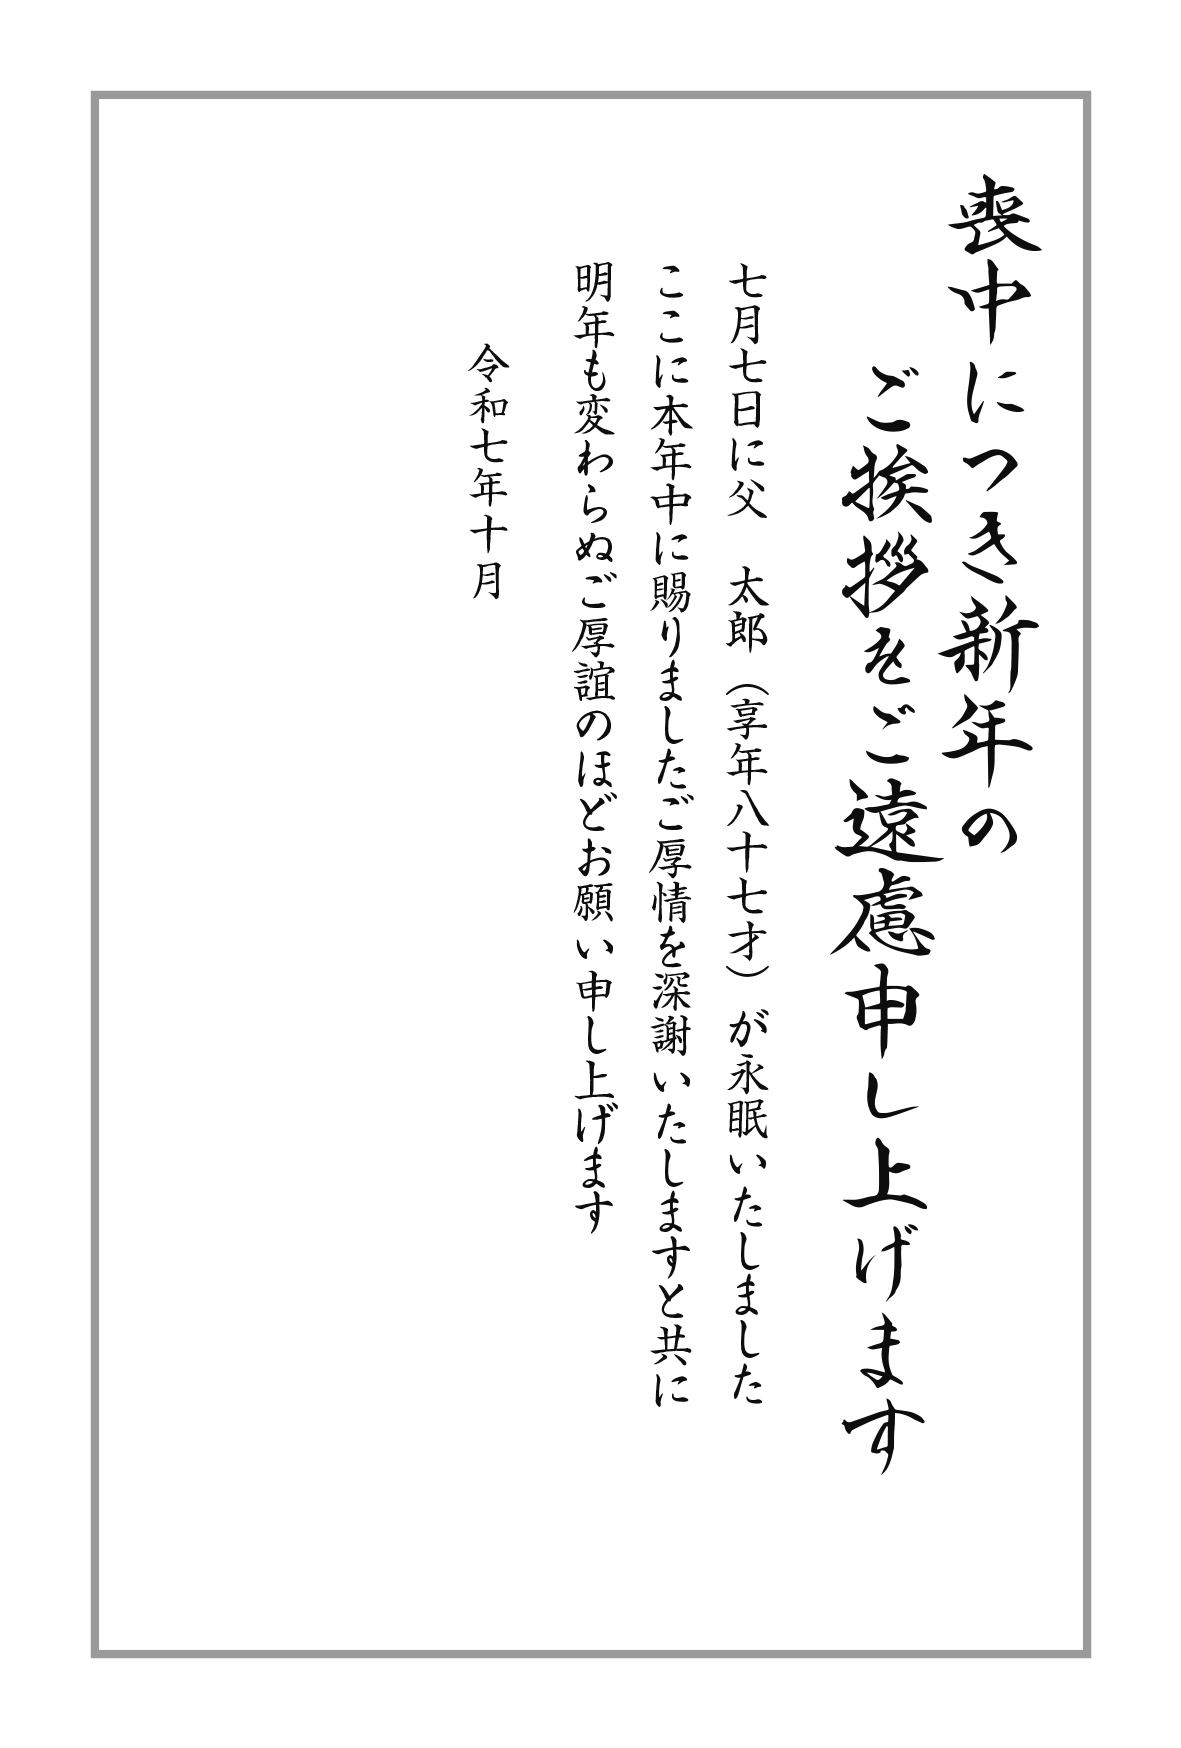 喪中につき新年の
ご挨拶をご遠慮申し上げます
七月七日に父　太郎（享年八十七才）が永眠いたしました
ここに本年中に賜りましたご厚情を深謝いたしますと共に
明年も変わらぬご厚誼のほどお願い申し上げます
令和七年十月